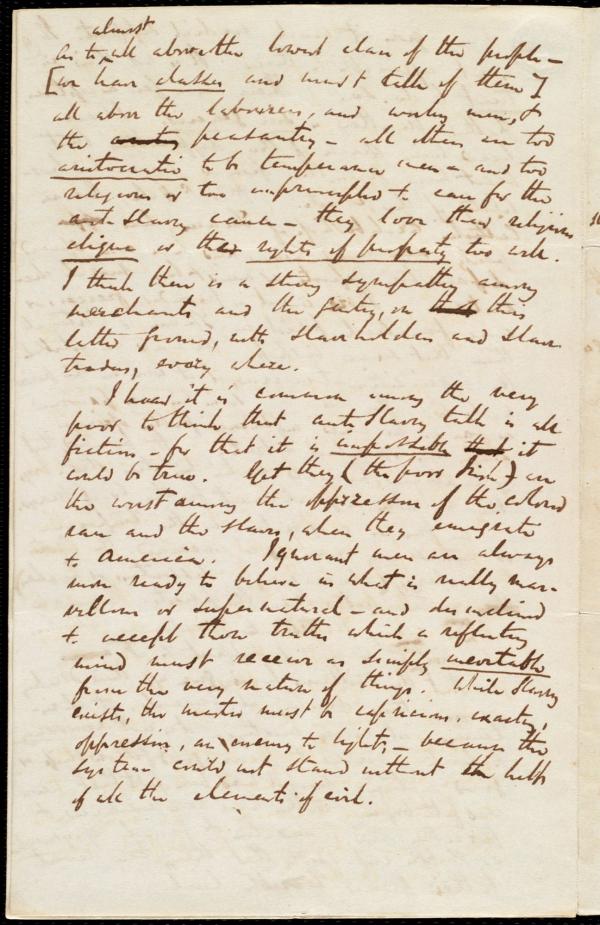 almost
As to all above the lowest class of the people –
[we have classes and must talk of them]
all above the laborers, and working men, &
the peasantry – all others are too
aristocratic to be temperance men – and too
religious or too unprincipled to care for the
anti slavery cause – they love their religious
clique or their rights of property too well.
I think there is a strong sympathy among
merchants and the gentry, on this
latter ground, with slaveholders and slave
traders, every where.
I hear it is common among the very
poor to think that anti slavery talk is all
fiction – for that it is impossible that it
could be true. Yet they (the poor Irish) are
the worst among the oppressors of the colored
race and the slaves, when they emigrate
to America. Ignorant men are always
more ready to believe in what is really mar-
vellous or supernatural – and disinclined
to accept those truths which a reflecting
mind must receive as simply inevitable
from the very nature of things. While slavery
exists, the master must be capricious, exacting,
oppressive, an enemy to light, – because the
system could not stand without the help
of all the elements of evil.